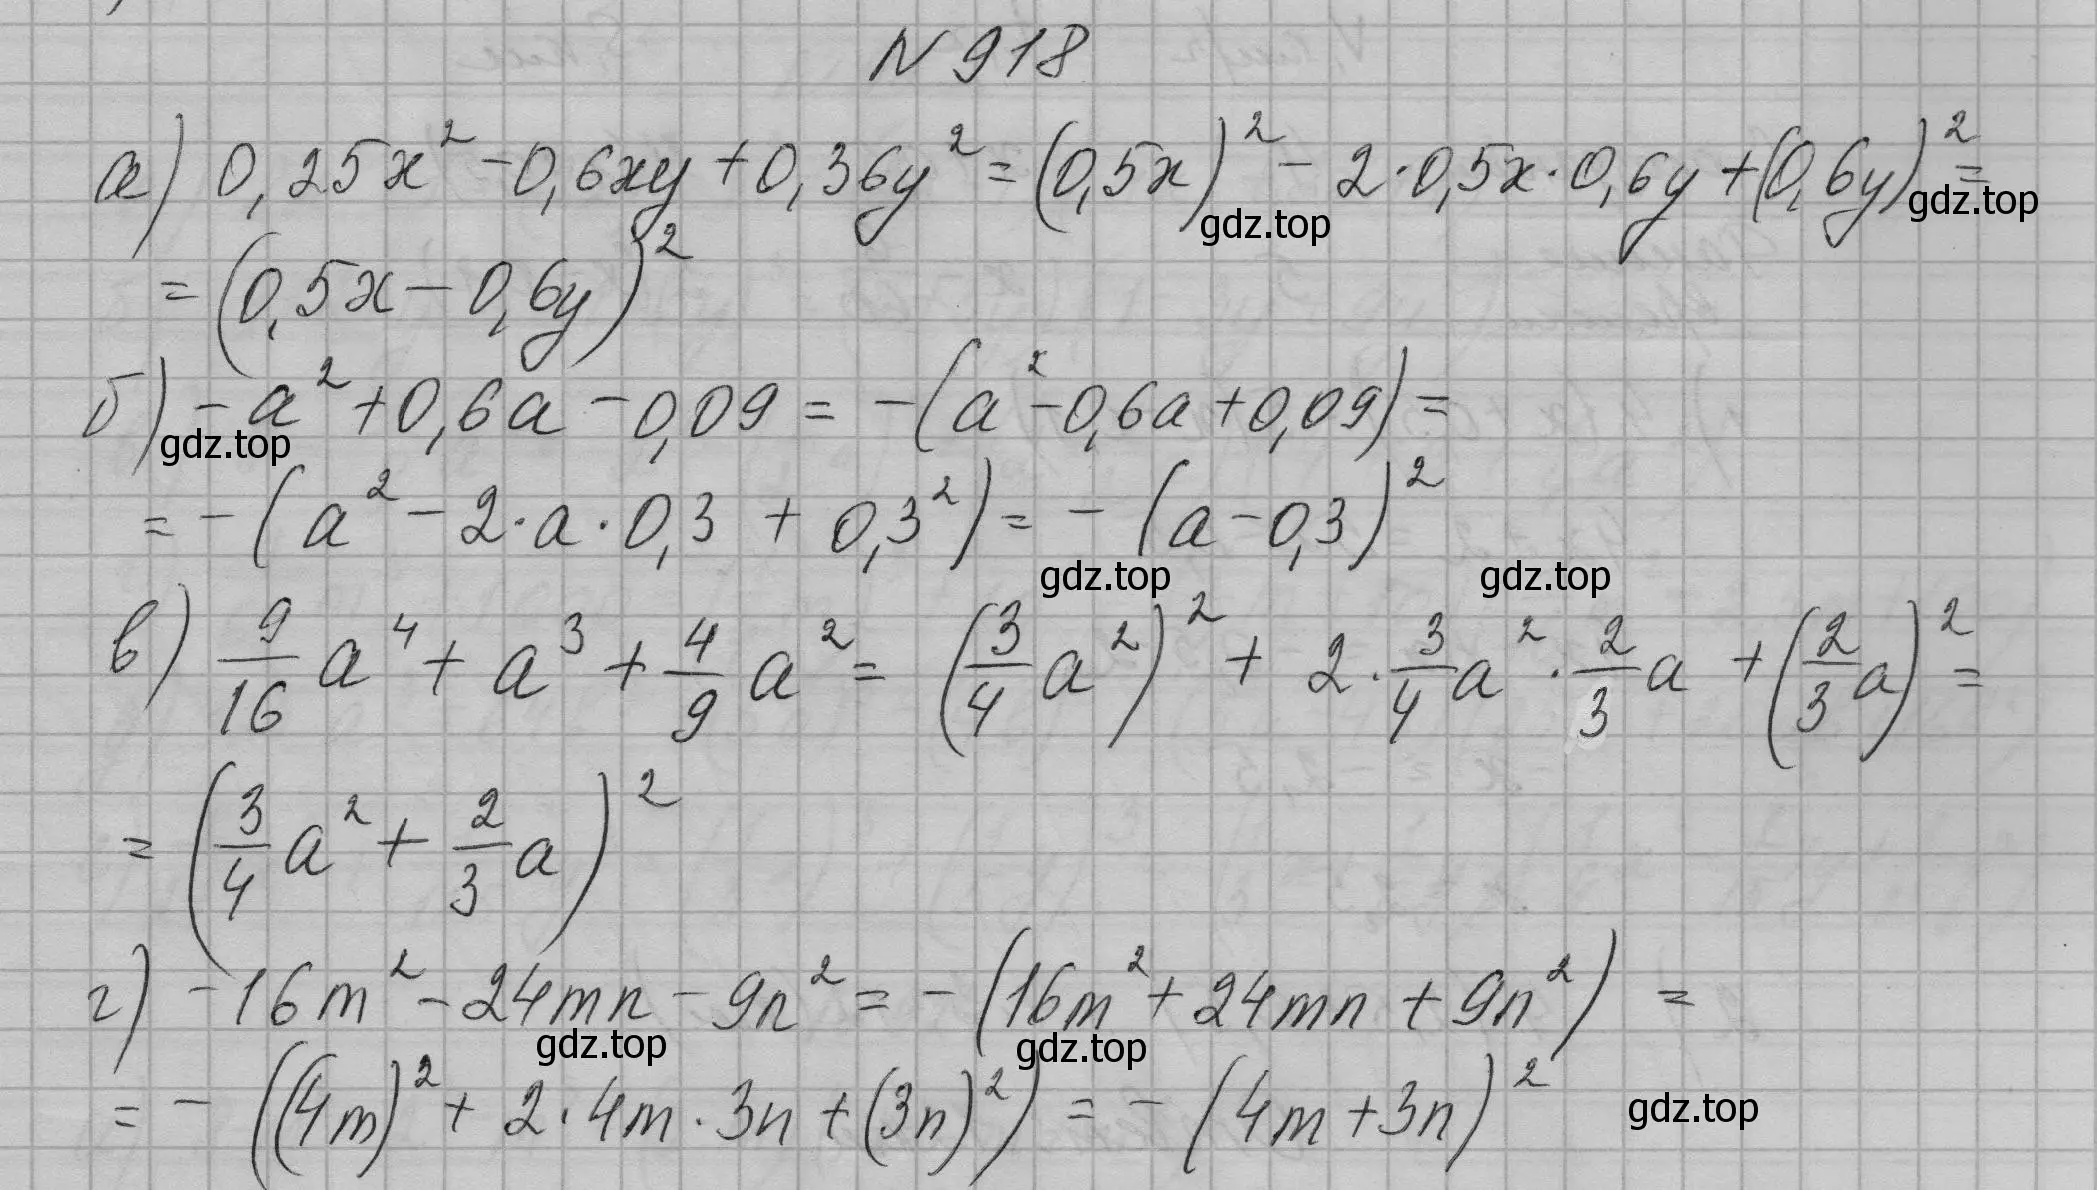 N 918
а) 0,25x² - 0,6xy + 0,36y² = (0,5x)² - 2·0,5x·0,6y + (0,6y)² =
gdz.top gdz.top
= (0,5x - 0,6y)²
б) -a² + 0,6a - 0,09 = -(a² - 0,6a + 0,09) =
gdz.top
= -(a² - 2·a·0,3 + 0,3²) = -(a - 0,3)²
gdz.top gdz.top
в) 9/16 a⁴ + a³ + 4/9 a² = (3/4 a²)² + 2·3/4 a²·2/3 a + (2/3 a)² =
= (3/4 a² + 2/3 a)²
г) -16m² - 24mn - 9n² = -(16m² + 24mn + 9n²) =
gdz.top gdz.top
= -((4m)² + 2·4m·3n + (3n)²) = -(4m + 3n)²
gdz.top